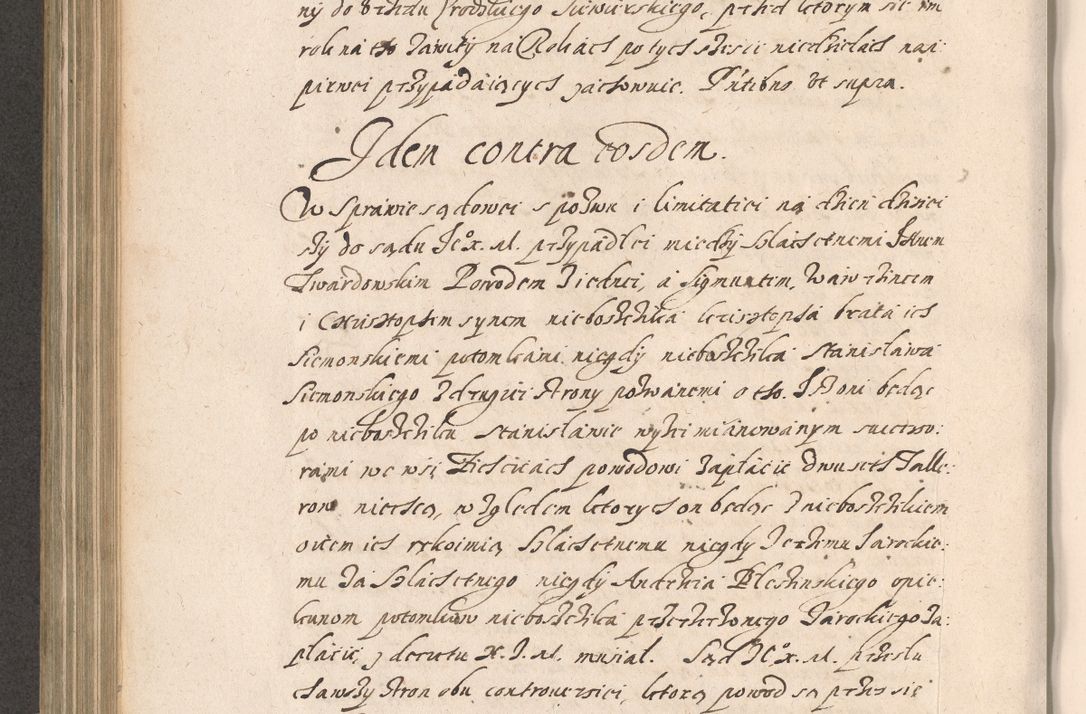 ny do Urzedu Grodzkiego Siewierskiego, przed ktorym sie im
roki na tho zawity na Rokach po tych sześci niedzielach nai:
pierwei przypadaiących zachowuie. Pñtibus ut supra.
Idem contra eosdem.
W sprawie sądowei s pozwu i limitatiei na dzien dzisiei
szy do sądu Je° x. M. przypadlei miedzy szlachetnemi Janem
Twardowskim Powodem z iednei, a Sigmuntem, Wawrzincem
i Chrisztophem synem nieboszczika krzisztopha brata ich
Siemonskiemi potomkami niegdy nieboszczika Stanislawa
Siemonskiego z drugiei strony pozwanemi o tho. Iż oni będąc
po nieboszcziku Stanislawie wyżei mianowanym successo:
rami we wsi powodowi zaplacic dwuseth Talle:
row niechcą, wzgledem ktorych on będąc z nieboszczikiem
oicem ich rękoimią szlachetnemu niegdy Jerzemu Jarockie:
mu za szlachetnego niegdy Andrzeia Pleszinskiego opie:
kunom potomkow nieboszczika przerzeczonego Jarockiego za:
placic, z decretu X. J. M. musial. Sąd Je° x. M. przeslu
chawszy stron obu controuersiei, ktorą powod są przes sie